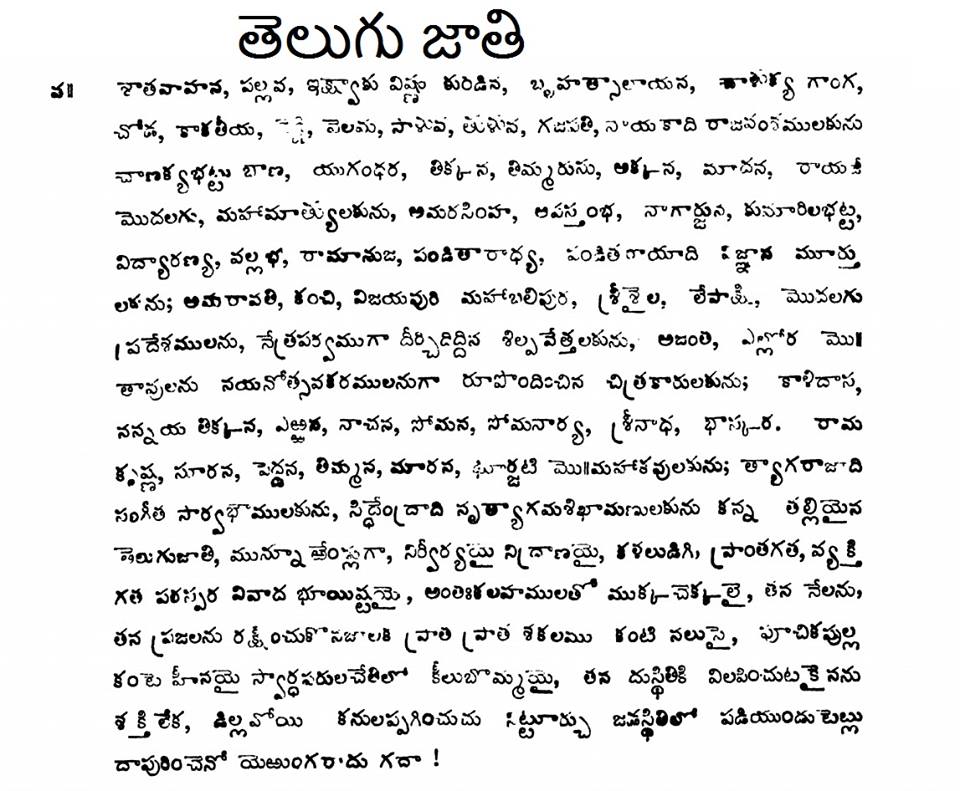 తెలుగు జాతి
వ॥ శాతవాహన, పల్లవ, ఇక్ష్వాకు విష్ణు కుండిన, బృహత్సాలాయన, చాళుక్య గాంగ,
చోడ, కాకతీయ, రెడ్డి, వెలమ, సాళువ, తుళువ, గజపతి, నాయకాది రాజవంశములకును
చాణక్యభట్టు బాణ, యుగంధర, తిక్కన, తిమ్మరుసు, అక్కన, మాదన, రాయకీ
మొదలగు, మహామాత్యులకును, అమరసింహ, ఆపస్తంభ, నాగార్జున, కుమారిలభట్ట,
విద్యారణ్య, వల్లభ, రామానుజ, పండితారాధ్య, పండితరాయాది విజ్ఞాన మూర్తు
లకును; అమరావతి, కంచి, విజయపురి మహాబలిపుర, శ్రీశైల, లేపాక్షి, మొదలగు
ప్రదేశములను, నేత్రపర్వముగా దీర్చిదిద్దిన శిల్పవేత్తలకును, అజంతా, ఎల్లోర మొ॥
తావులను నయనోత్సవకరములనుగా రూపొందించిన చిత్రకారులకును; కాళిదాస,
నన్నయ తిక్కన, ఎఱ్ఱన, నాచన, సోమన, సోమనార్య, శ్రీనాధ, భాస్కర. రామ
కృష్ణ, సూరన, పెద్దన, తిమ్మన, మారన, ఘూర్జటి మొ॥మహాకవులకును; త్యాగరాజాది
సంగీత సార్వభౌములకును, సిద్ధేంద్రాది నృత్యాగమశిఖామణులకును కన్న తల్లియైన
తెలుగుజాతి, మున్నూ ఱేండ్లుగా, నిర్వీర్యయై నిద్రాణయై, కళలుడిగి, ప్రాంతగత, వ్యక్తి
గత పరస్పర వివాద భూయిష్టయై, అంతఃకలహములతో ముక్కచెక్కలై, తన నేలను,
తన ప్రజలను రక్షించుకొనజాలక ప్రాతి ప్రాత శకలము కంటి నలుసై, పూచికపుల్ల
కంటె హీనయై స్వార్ధపరులచేతిలో కీలుబొమ్మయై, తన దుస్థితికి విలపించుటకైనను
శక్తిలేక, డిల్లవోయి కనులప్పగించుచు నిట్టూర్చు జనస్థితిలో పడియుండు టెట్లు
దాపురించెనో యెఱుంగరాదు గదా !